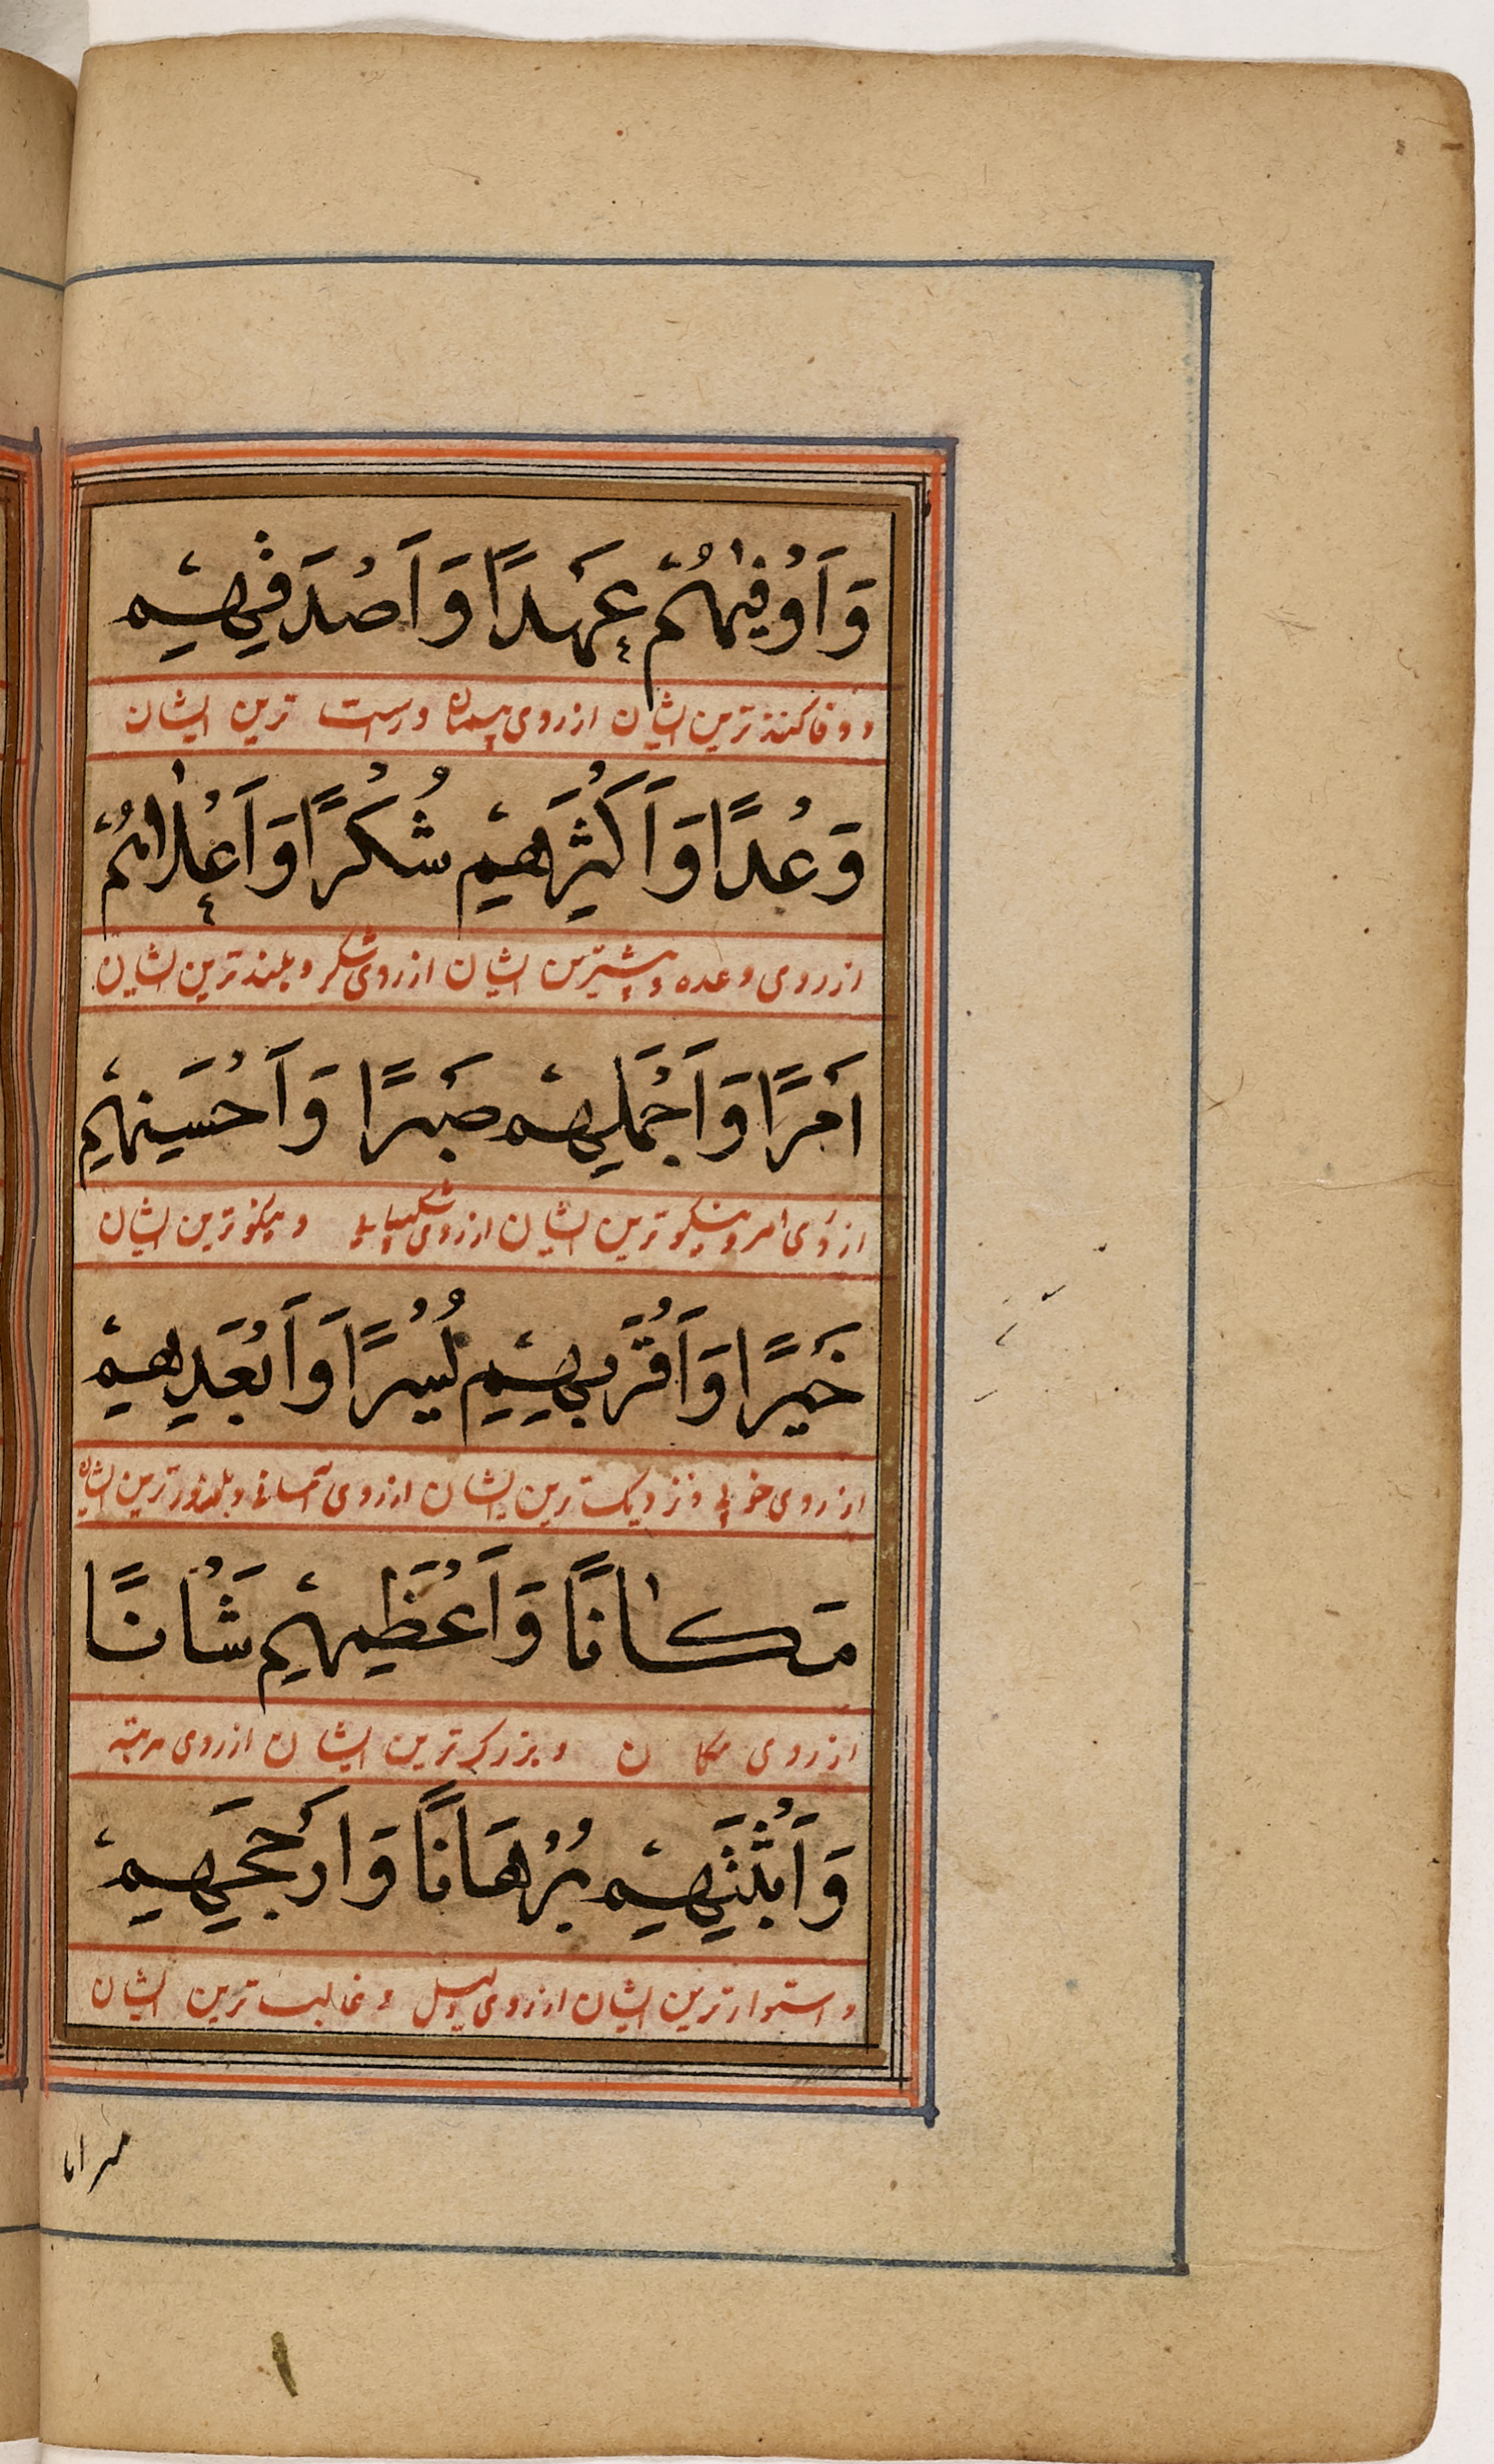 وَاَوْفٰیهُمْ عَهْدًا وَاَصْدَقِهِمْ
و وفا کننده ترین ایشان از روی پیمان و راست ترین ایشان
وَعْدًا وَاَكْثَرِهِمْ شُكْرًا وَاَعْلٰاهُمْ
از روی وعده و بیشترین ایشان از روی شکر و بلند ترین ایشان
اَمْرًا وَاَجْمَلِهِمْ صَبْرًا وَاَحْسَنِهِمْ
از روی امر و نیکو ترین ایشان از روی شکیبایی و نیکو ترین ایشان
خَيْرًا وَاَقْرَبِهِمْ يُسْرًا وَاَبْعَدِهِمْ
از روی خوبی و نزدیک ترین ایشان از روی آسانی و ترین ایشان
مَكٰانًا وَاَعْظَمِهِمْ شَاْنًا
از روی مکان و بزرک ترین ایشان از روی مرتبه
وَاَثْبَتِهِمْ بُرْهَانًا وَاَرْجَحِهِمْ
و استوار ترین ایشان از روی دلیل و غالب ترین ایشان
میزانا